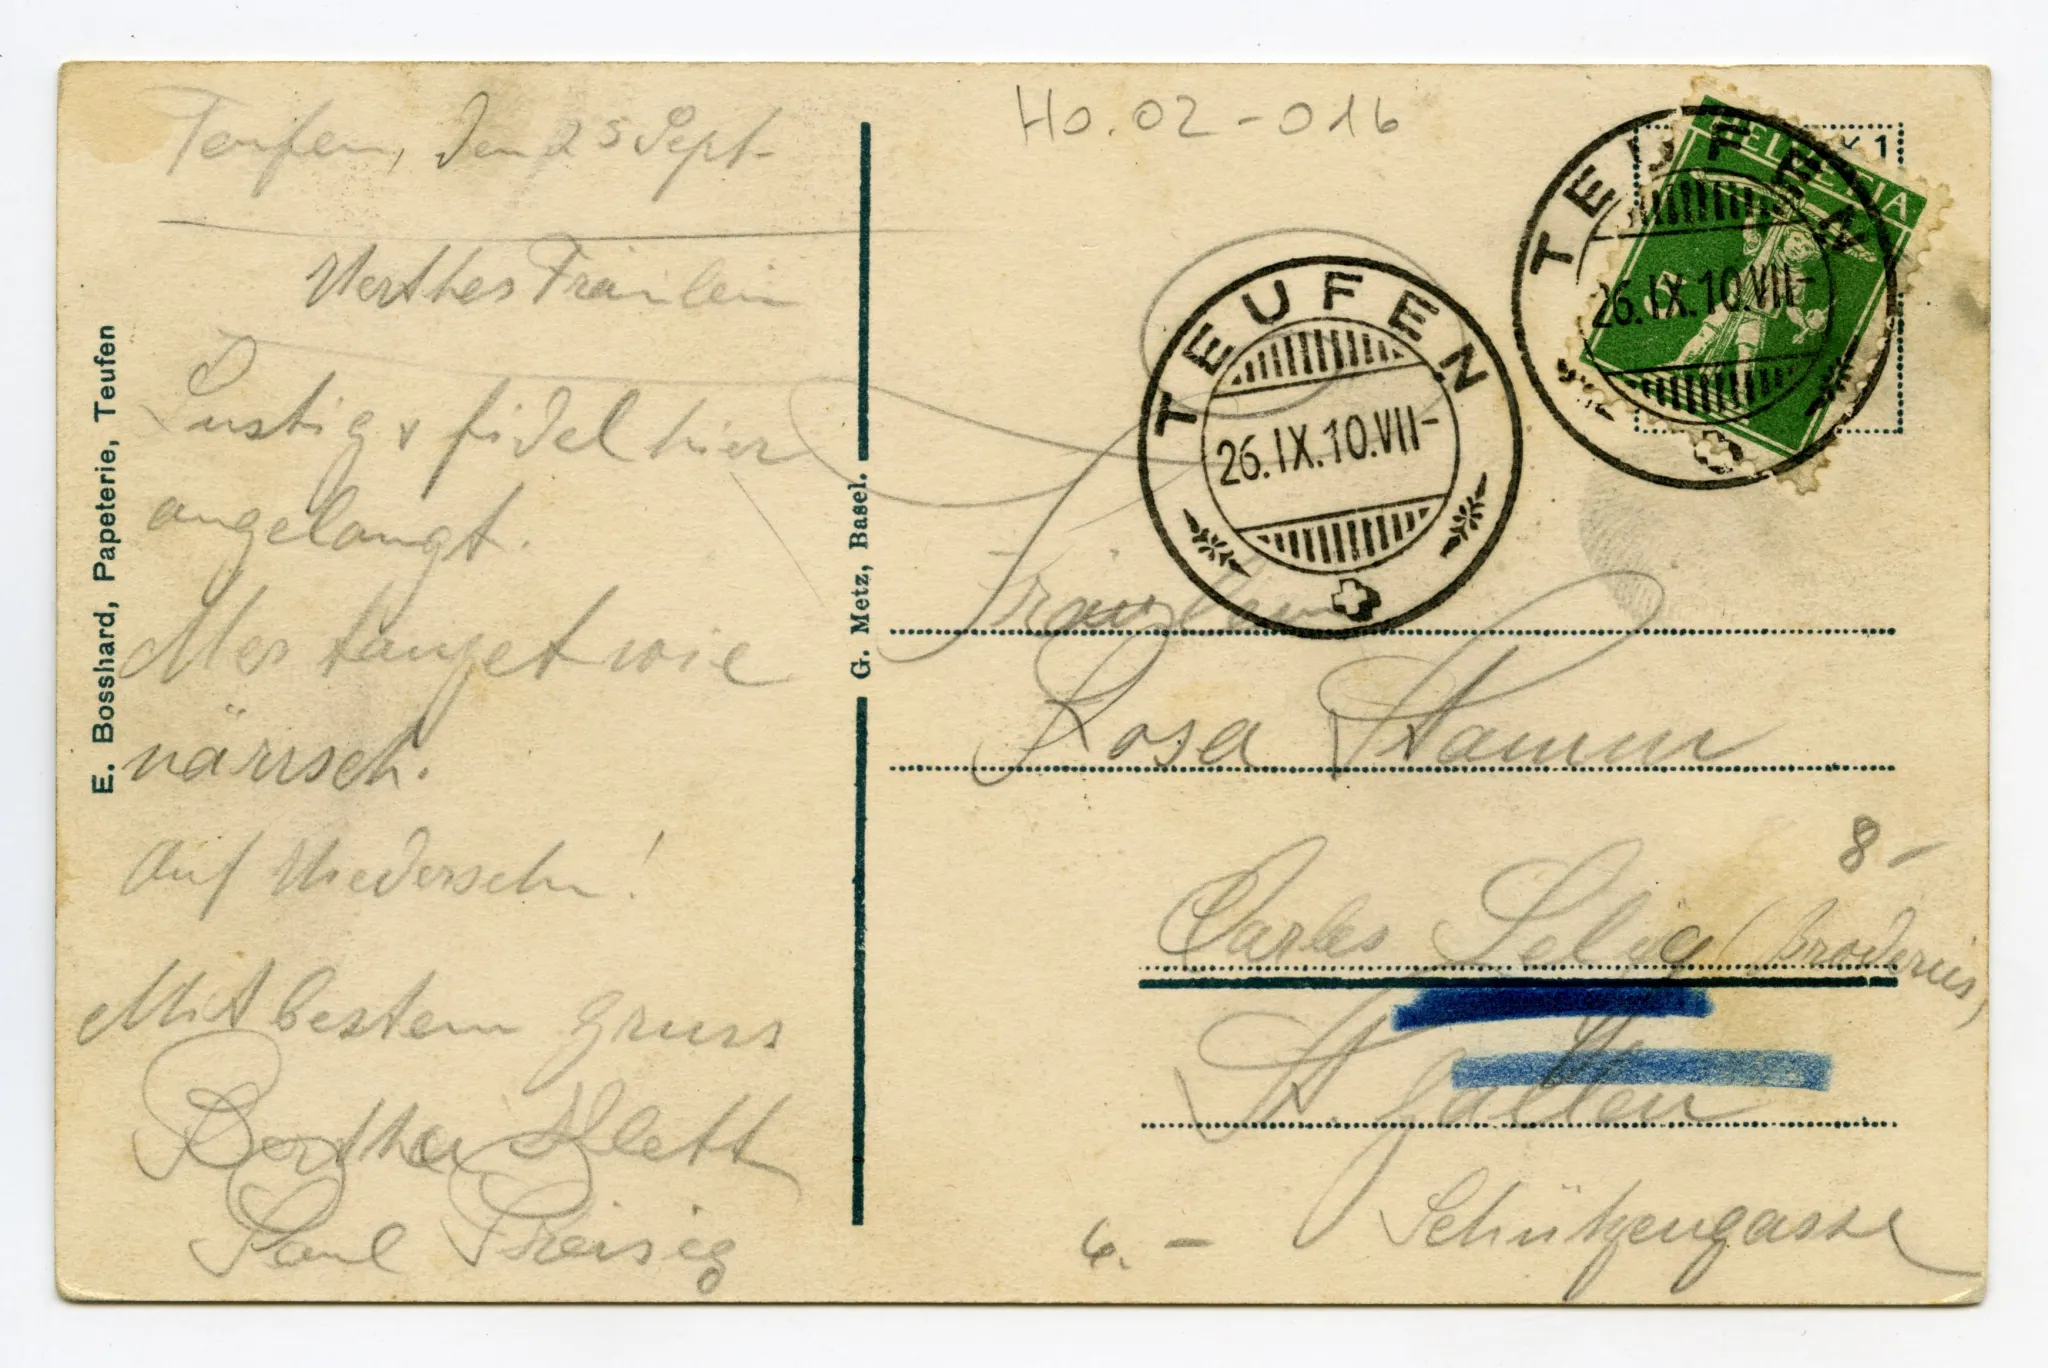 Teufen, den 25 Sept.
Werthes Fräulein
Lustig & fidel hier
angelangt.
Mer tanzet wie
närrsch.
Auf Wiedersehn!
Mit bestem Gruss
Bertha Klett
Paul Preisig
E. Bosshard, Papeterie, Teufen
G. Metz, Basel.
Ho. 02-016
TEUFEN
26.IX.10.VII-
HELVETIA
TEUFEN
26.IX.10.VII-
Fräulein
Rosa Stamm
8-
Carles Selig (Broderies)
St. Gallen
Schützengasse
6.-